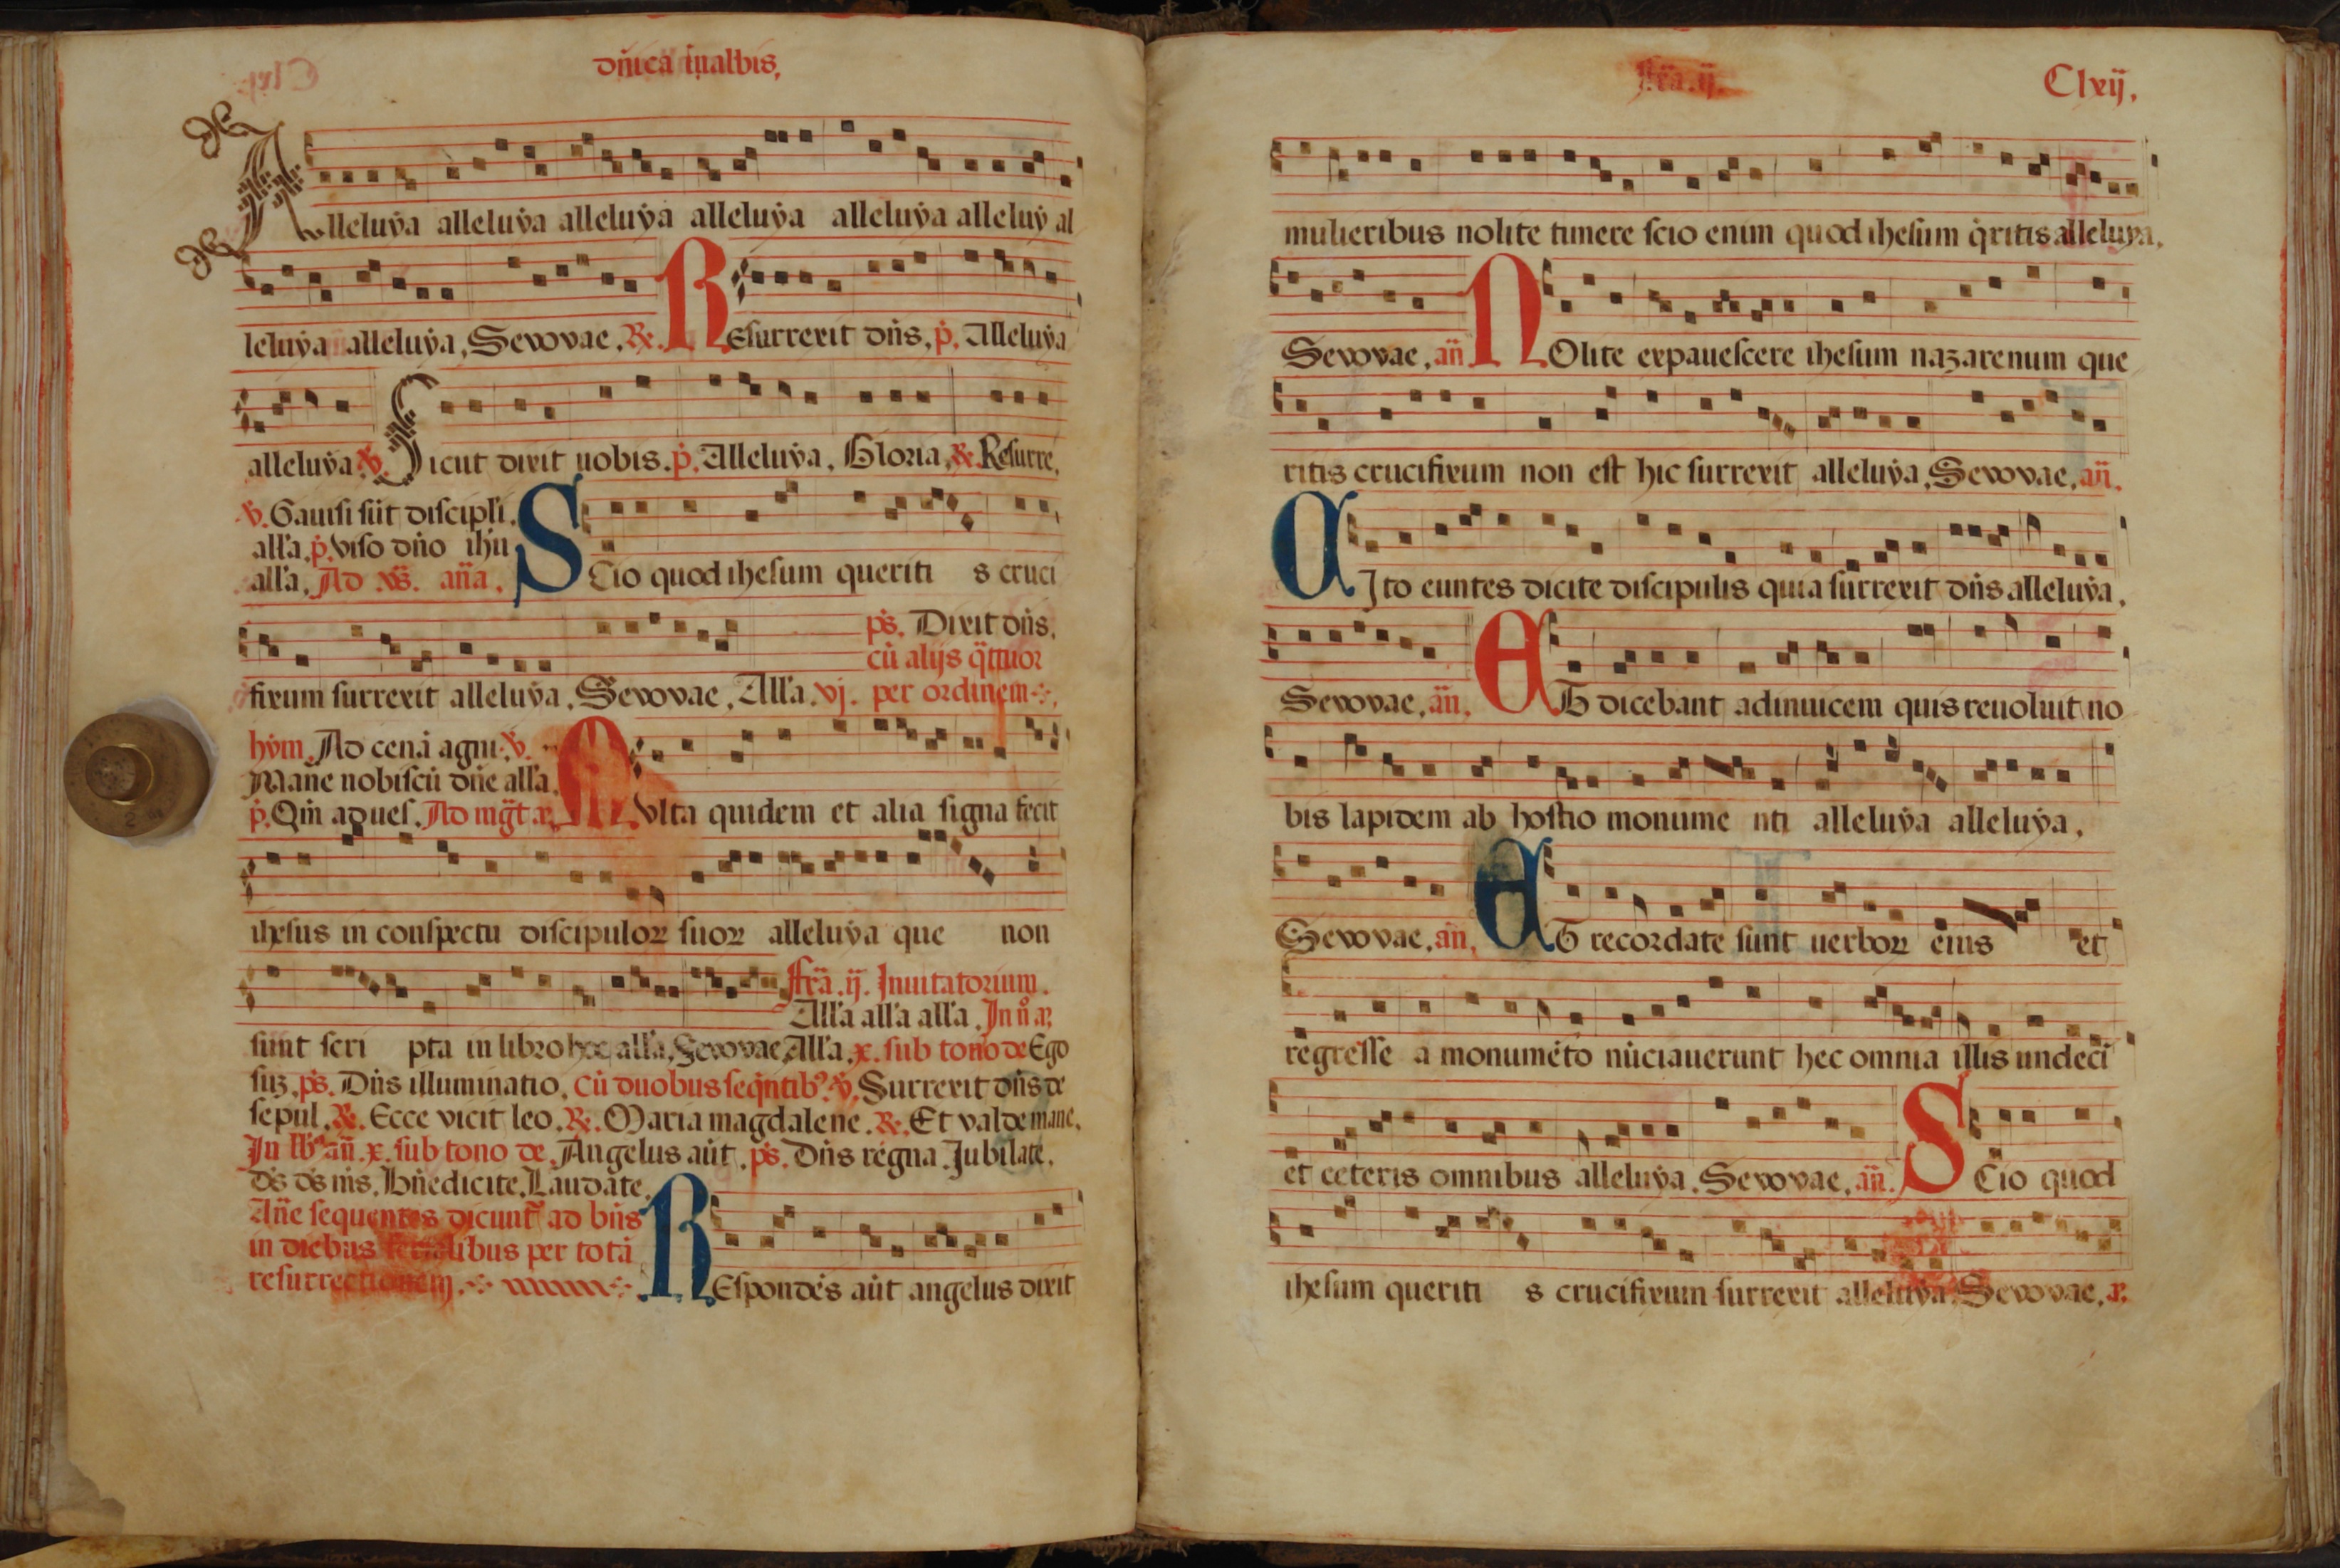 dn̄ica īnalbis.
Alleluẏa alleluẏa alleluẏa alleluẏa alleluẏa alleluẏ al
leluẏa alleluẏa. Seuouae. ℟. Resurrexit dn̄s. ṗ. Alleluẏa
alleluẏa. ℣. Sicut dixit uobis. ṗ. Alleluẏa. Gloria. ℟. Resurre.
℣. Gauisi sūt discipl̄i.
all'a. ṗ. viso dn̄o ihū
all'a. Ad xv̄s. an̄a. Scio quod ihesum queriti s cruci
fixum surrexit alleluẏa. Seuouae. All'a. vj.
pṡ. Dixit dn̄s.
cū alijs q̄ttuor
per ordinem.
hẏm. Ad cenā agni. ℣.
Mane nobiscū dn̄e all'a.
ṗ. Qm̄ aduesꝭ. Ad mḡt. a. Multa quidem et alia signa fecit
ihesus in conspectu discipuloꝝ suoꝝ alleluẏa que non
sunt scri pta in libro hoc all'a. Seuouae. All'a. x. sub tono de Ego
fr̄a. ij. Inuitatorium.
All'a all'a all'a. In n̊ a.
suꝫ. pṡ. Dn̄s illuminatio. cū duobus seq̄ntibꝰ. ℣. Surrexit dn̄s de
sepul. ℟. Ecce vicit leo. ℟. Maria magdalene. ℟. Et valde mane.
In lb̄ꝰ an̄. x. sub tono de. Angelus aūt. pṡ. Dn̄s regna. Jubilate.
dṡ dṡ mṡ. Bn̄edicite. Laudate.
An̄e sequentes dicunt̄ ad bn̄s
in diebus ferialibus per totā
resurrectionem. Respondēs aūt angelus dixit
fr̄a. ij.
Clxij.
mulieribus nolite timere scio enim quod ihesum q̇ritis alleluya.
Seuouae. an̄ Nolite expauescere ihesum nazarenum que
ritis crucifixum non est hic surrexit alleluẏa. Seuouae. an̄.
Cito euntes dicite discipulis quia surrexit dn̄s alleluẏa.
Seuouae. an̄. Et dicebant adinuicem quis reuoluit no
bis lapidem ab hostio monume nti alleluẏa alleluẏa.
Seuouae. an̄. Et recordate sunt uerboꝝ eius et
regresse a monumēto nūciauerunt hec omnia illis undeci
et ceteris omnibus alleluẏa. Seuouae. an̄. Scio quod
ihesum queriti s crucifixum surrexit alleluẏa. Seuouae. a.